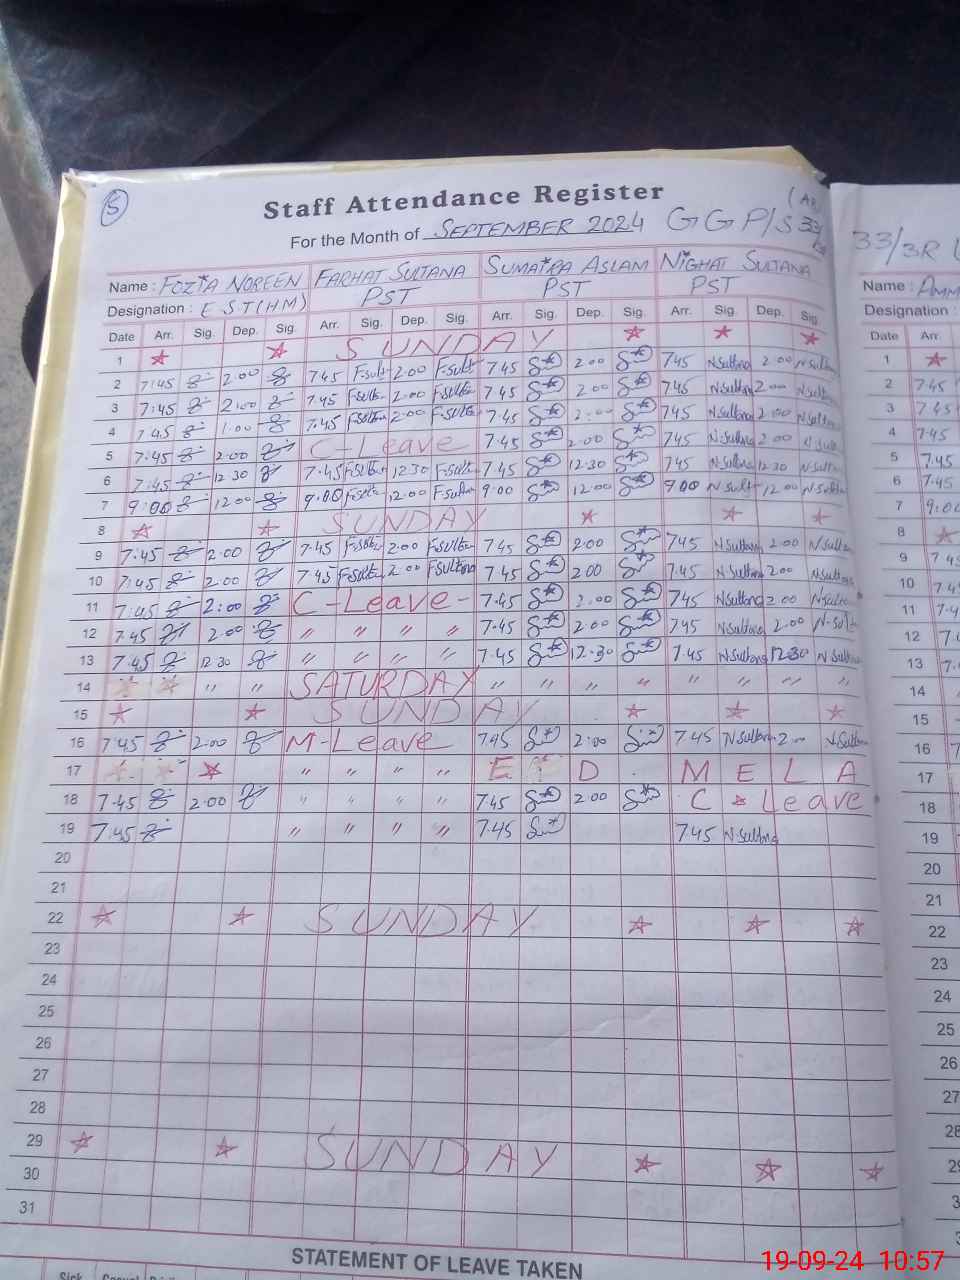 5
Staff Attendance Register
(A.R)
For the Month of SEPTEMBER 2024 G G P/S 33/3R
33/3R
Name : FOZIA NOREEN FARHAT SULTANA SUMAIRA ASLAM NIGHAT SULTANA Name :
Designation : E S T (HM) PST PST PST Designation :
Date Arr. Sig. Dep. Sig. Arr. Sig. Dep. Sig. Arr. Sig. Dep. Sig. Arr. Sig. Dep. Sig. Date Arr.
1 SUNDAY 1
2 7:45 2:00 7.45 F-sult 2.00 F-sult 7.45 2.00 7.45 N.Sultana 2.00 N-Sultana 2 7.45
3 7:45 2:00 7.45 F-sultan 2.00 F-sultan 7.45 2.00 7.45 N.Sultana 2.00 N.Sultana 3 7.45
4 7.45 1.00 7.45 F-sultan 2.00 F-sultan 7.45 2:00 7.45 N.Sultana 2:00 N.Sultana 4 7.45
5 7.45 2.00 C-Leave 7.45 2.00 7.45 N.Sultana 2.00 5 7.45
6 7.45 12.30 7.45 F-sultan 12.30 F-sult 7.45 12.30 7.45 N.Sultana 12.30 N-Sultana 6 7.45
7 9:00 12.00 9.00 F-sulta 12.00 F-sultan 9.00 12.00 9.00 N Sult 12.00 N Sultana 7 9:00
8 SUNDAY 8
9 7.45 2.00 7.45 F-sultan 2.00 F-sultan 7.45 2.00 7.45 N.Sultana 2.00 N.Sultana 9 7.45
10 7:45 2.00 7.45 F-sultan 2.00 F-sultana 7.45 2.00 7.45 N.Sultana 2.00 N.Sultana 10 7.45
11 7:45 2:00 C-Leave- 7.45 2.00 7.45 N.Sultana 2.00 N.Sultana 11 7.4
12 7.45 2.00 " " " " 7.45 2.00 7.45 N.Sultana 2.00 N-Sulta 12 7.
13 7.45 12 30 " " " " 7.45 12.30 7.45 N.Sultana 12.30 N Sultana 13 7.
14 " " SATURDAY " " " " " " " " 14
15 SUNDAY 15
16 7.45 2:00 M-Leave 7.45 2:00 7.45 N.Sultana N.Sultana 16 7
17 " " " " E D M E L A 17
18 7.45 2.00 " " " " 7.45 2.00 C Leave 18
19 7.45 " " " " 7.45 7.45 N.Sultana 19
20 20
21 21
22 SUNDAY 22
23 23
24 24
25 25
26 26
27 27
28 28
29 SUNDAY 29
30
31
STATEMENT OF LEAVE TAKEN
Sick Casual
19-09-24 10:57